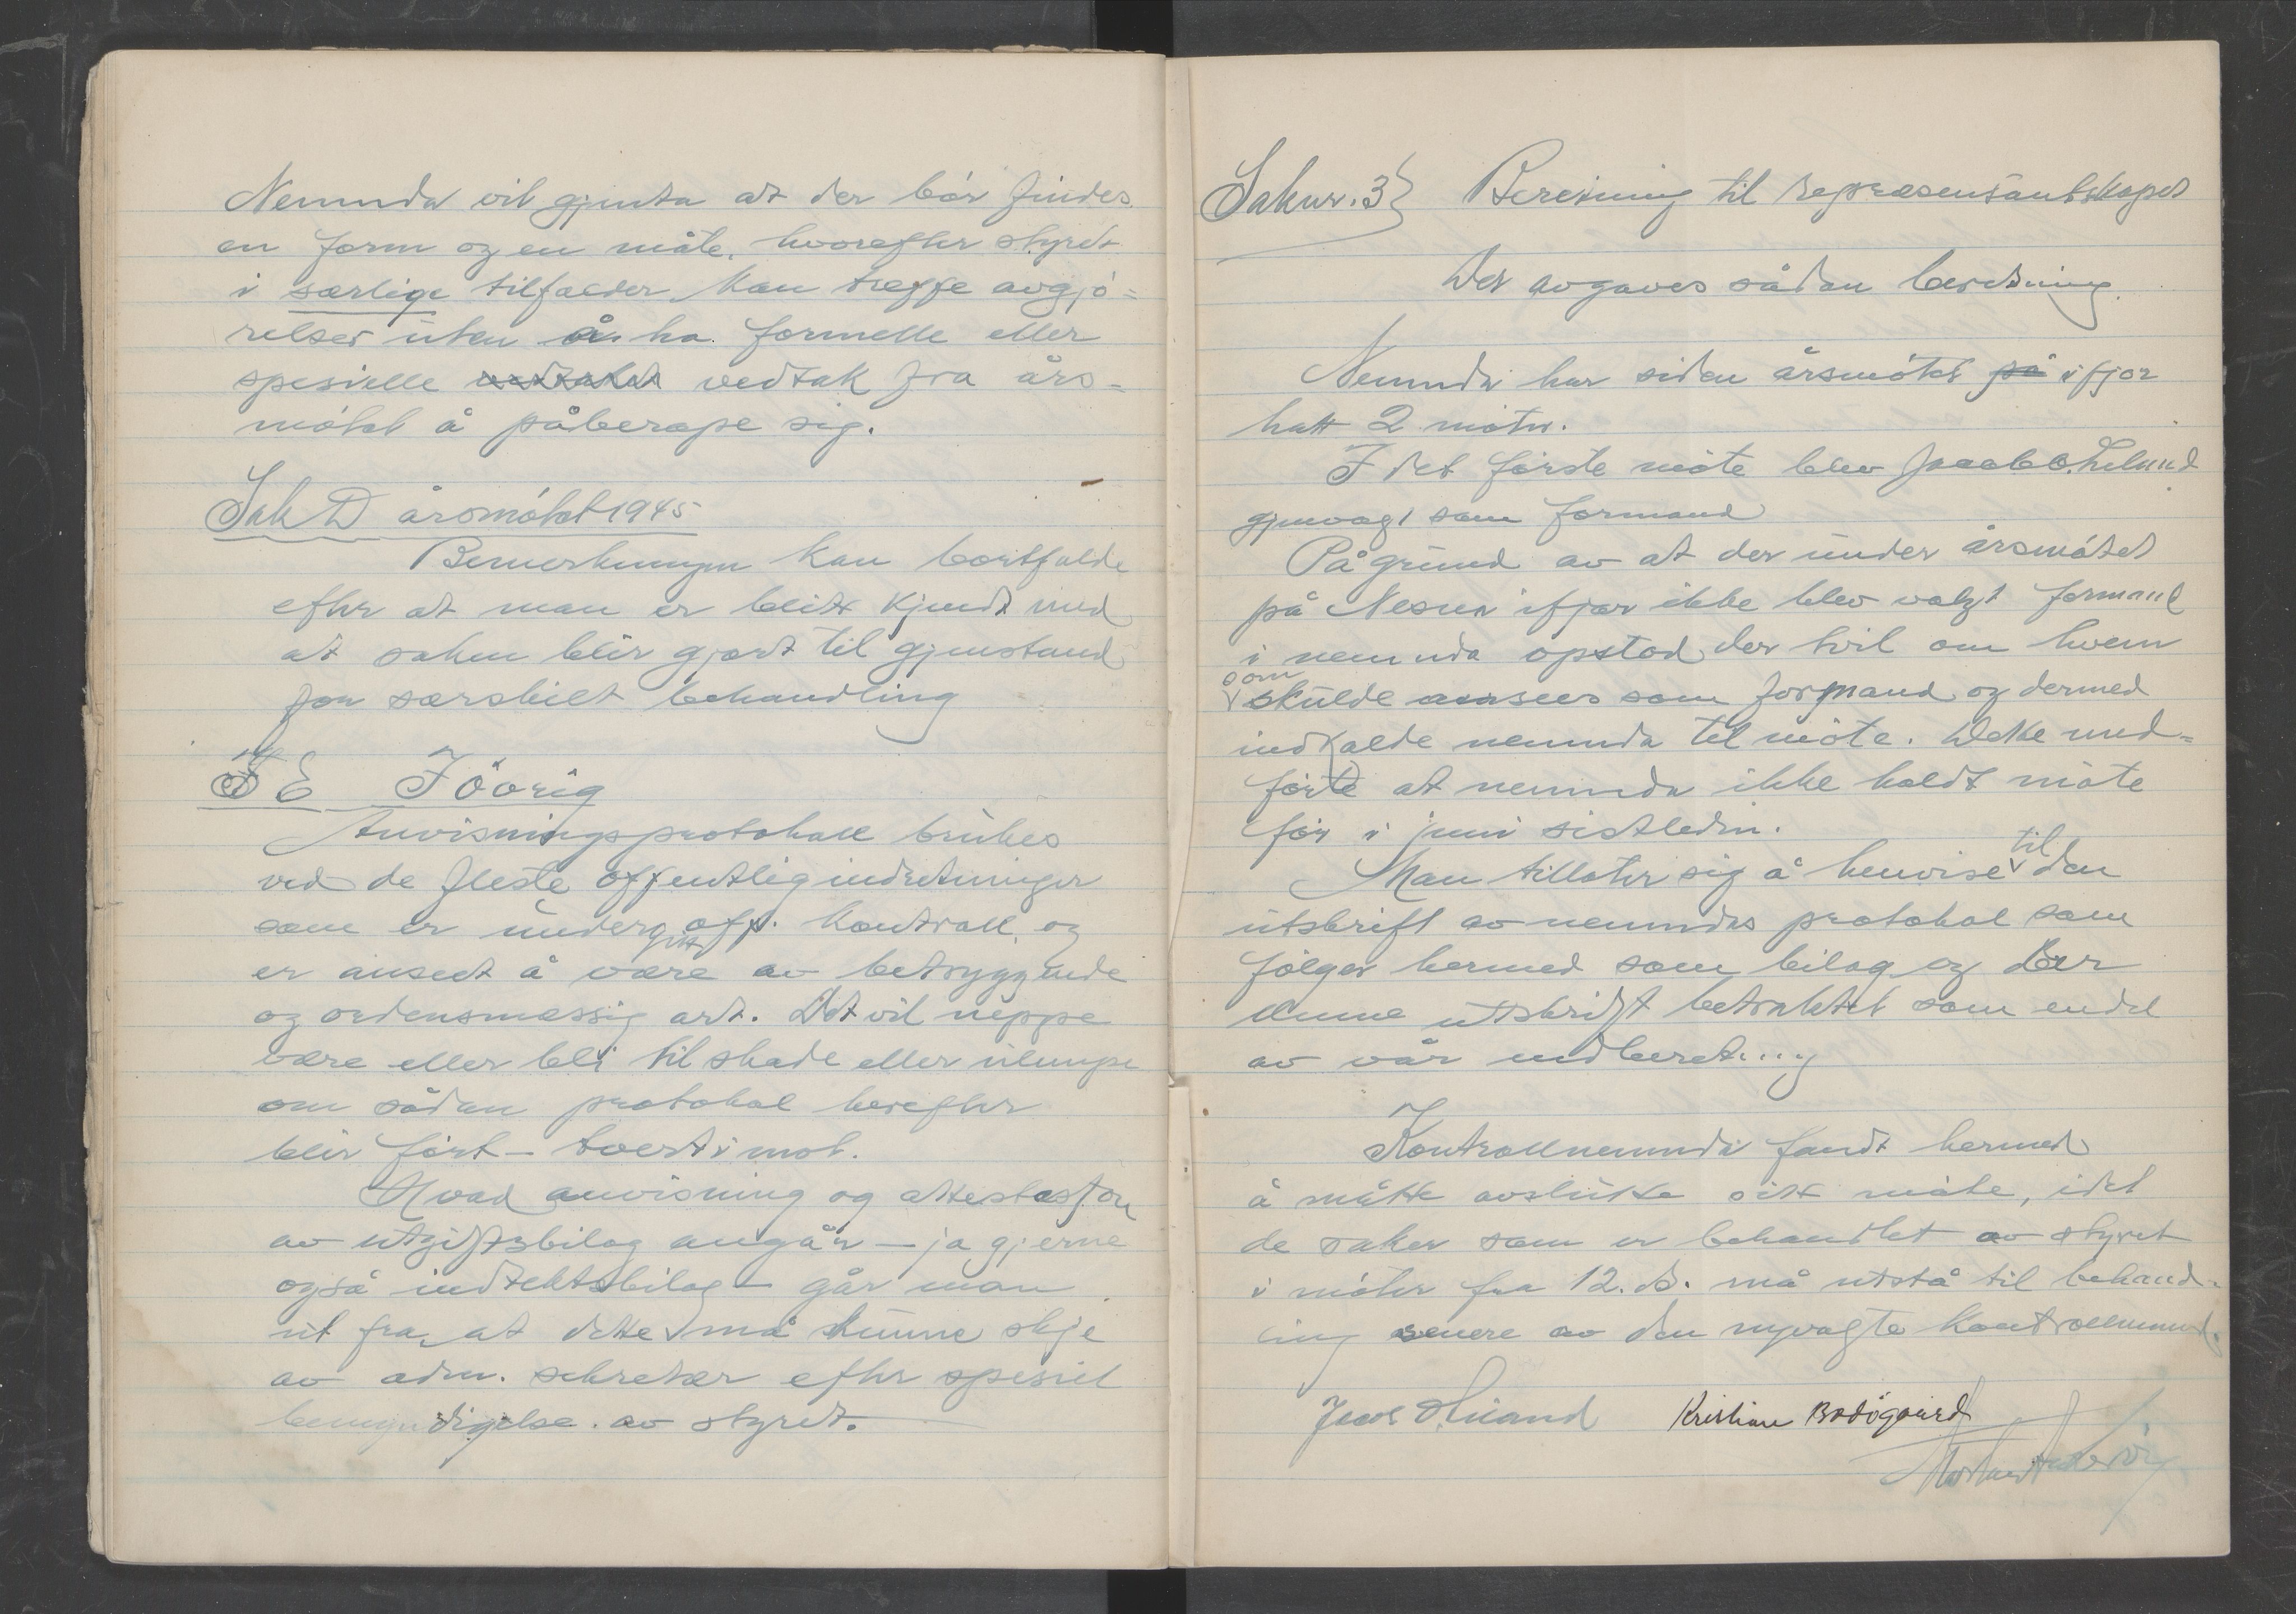 Nemnda vil gjenta at der bör findes
en form og en måte, hvorefter styret
i særlige tilfælder kan træffe avgjö=
relser uten å ha formelle eller
spesielle vedtaket vedtak fra års-
mötet å påberope sig.
Sak D årsmötet 1945
Bemerkningen kan bortfalde
efter at man er blitt kjendt med
at saken blir gjort til gjenstand
for særskilt behandling
E Iövrig
Anvisningsprotokoll brukes
ved de fleste offentlig indretninger
som er undergitt off. kontroll og
er anseet å være av betryggende
og ordensmæssig art. Det vil neppe
være eller bli til skade eller ulempe
om sådan protokol herefter
blir fört - tvertimot.
Hvad anvisning og attestasjon
av utgiftsbilag angår - ja gjerne
også indtektsbilag - går man
ut fra, at dette må kunne skje
av adm. sekretær efter spesiel
bemyndigelse av styret.
Saknr. 3} Beretning til representantskapet
Der avgaves sådan beretning.
Nemnda har siden årsmötet på ifjor
hatt 2 möter.
I det förste möte blev Jacob
gjenvagt som formand
På grund av at der under årsmötet
på Nesna ifjor ikke blev valgt formand
i nemnda opstod der tvil om hvem
som skulde ansees som formand og dermed
indkalde nemnda til möte. Dette med=
förte at nemnda ikke holdt möte
för i juni sistleden.
Man tillater sig å henvise til den
utskrift av nemndas protokol som
fölger hermed som bilag og ber
denne utskrift betraktet som endel
av vår indberetning
Kontrollnemnda fandt hermed
å måtte avslutte sitt möte, idet
de saker som er behandlet av styret
i möter fra 12. ds. må utstå til behand-
ling senere av den nyvagte kontrollnemnd.
Kristian Bodögaard